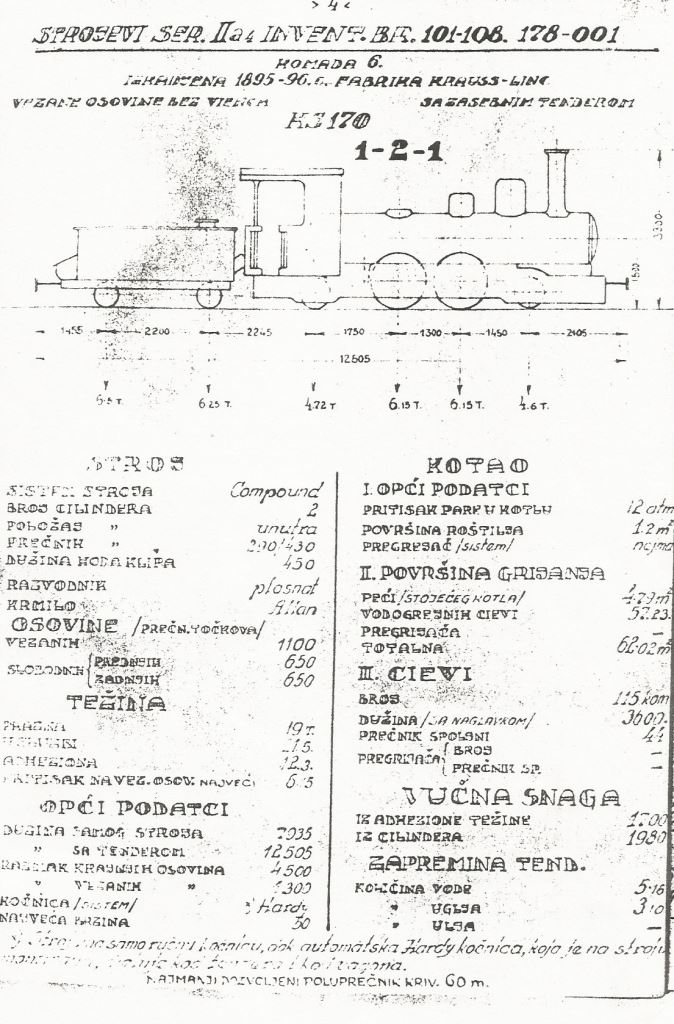 > 4 <
STROJEVI SER. IIa4 INVENT. BR. 101-108. 178-001
KOMADA 6.
IZRAĐENA 1895-96.G. FABRIKA KRAUSS-LINC
VEZANE OSOVINE BEZ VIJENCA
SA ZASEBNIM TENDEROM
KJ 170
1-2-1
1455 2200 2245 1750 1300 1450 2105
12605
6.25 T. 4.72 T 6.15 T. 6.15 T. 4.6 T.
STROJ
SISTEM STROJA Compound
BROJ CILINDERA 2
POLOŽAJ " unutra
PREČNIK " 290/430
DUŽINA HODA KLIPA 450
RAZVODNIK plosnat
KRMILO Allan
OSOVINE /PREČN. TOČKOVA/
VEZANIH 1100
SLOBODNIH PREDNJIH 650
ZADNJIH 650
TEŽINA
PRAZNA 19 T.
ADHEZIONA 12.3.
PRITISAK NA VEZ. OSOV. NAJVEĆI 6.15
OPĆI PODATCI
DUŽINA SAMOG STROJA 7935
" SA TENDEROM 12505
RAZMAK KRAJNJIH OSOVINA 4500
" VEZANIH " 1300
KOČNICA /SISTEM/ Hardy
NAJVEĆA BRZINA
KOTAO
I. OPĆI PODATCI
PRITISAK PARE U KOTLU 12 atm
POVRŠINA ROŠTILJA 1.2 m²
PREGREJAČ /sistem/ nejma
II. POVRŠINA GRIJANJA
PEĆI /STOJEĆEG KOTLA/ 4.79 m²
VODOGREJNIH CIEVI 57.23.
PREGRIJAČA —
TOTALNA 62.02 m²
III. CIEVI
BROJ 115 kom
DUŽINA /SA NAGLAVKOM/ 3600.
PREČNIK SPOLJNI 44
PREGRIJAČA BROJ —
PREČNIK SP. —
VUČNA SNAGA
IZ ADHEZIONE TEŽINE 1700
IZ CILINDERA 1980
ZAPREMINA TEND.
KOLIČINA VODE 5.16
" UGLJA 3.10
" ULJA —
samo ručnu kočnicu, dok automatska Hardy kočnica, koja je na stroju
NAJMANJI DOZVOLJENI POLUPREČNIK KRIV. 60 m.